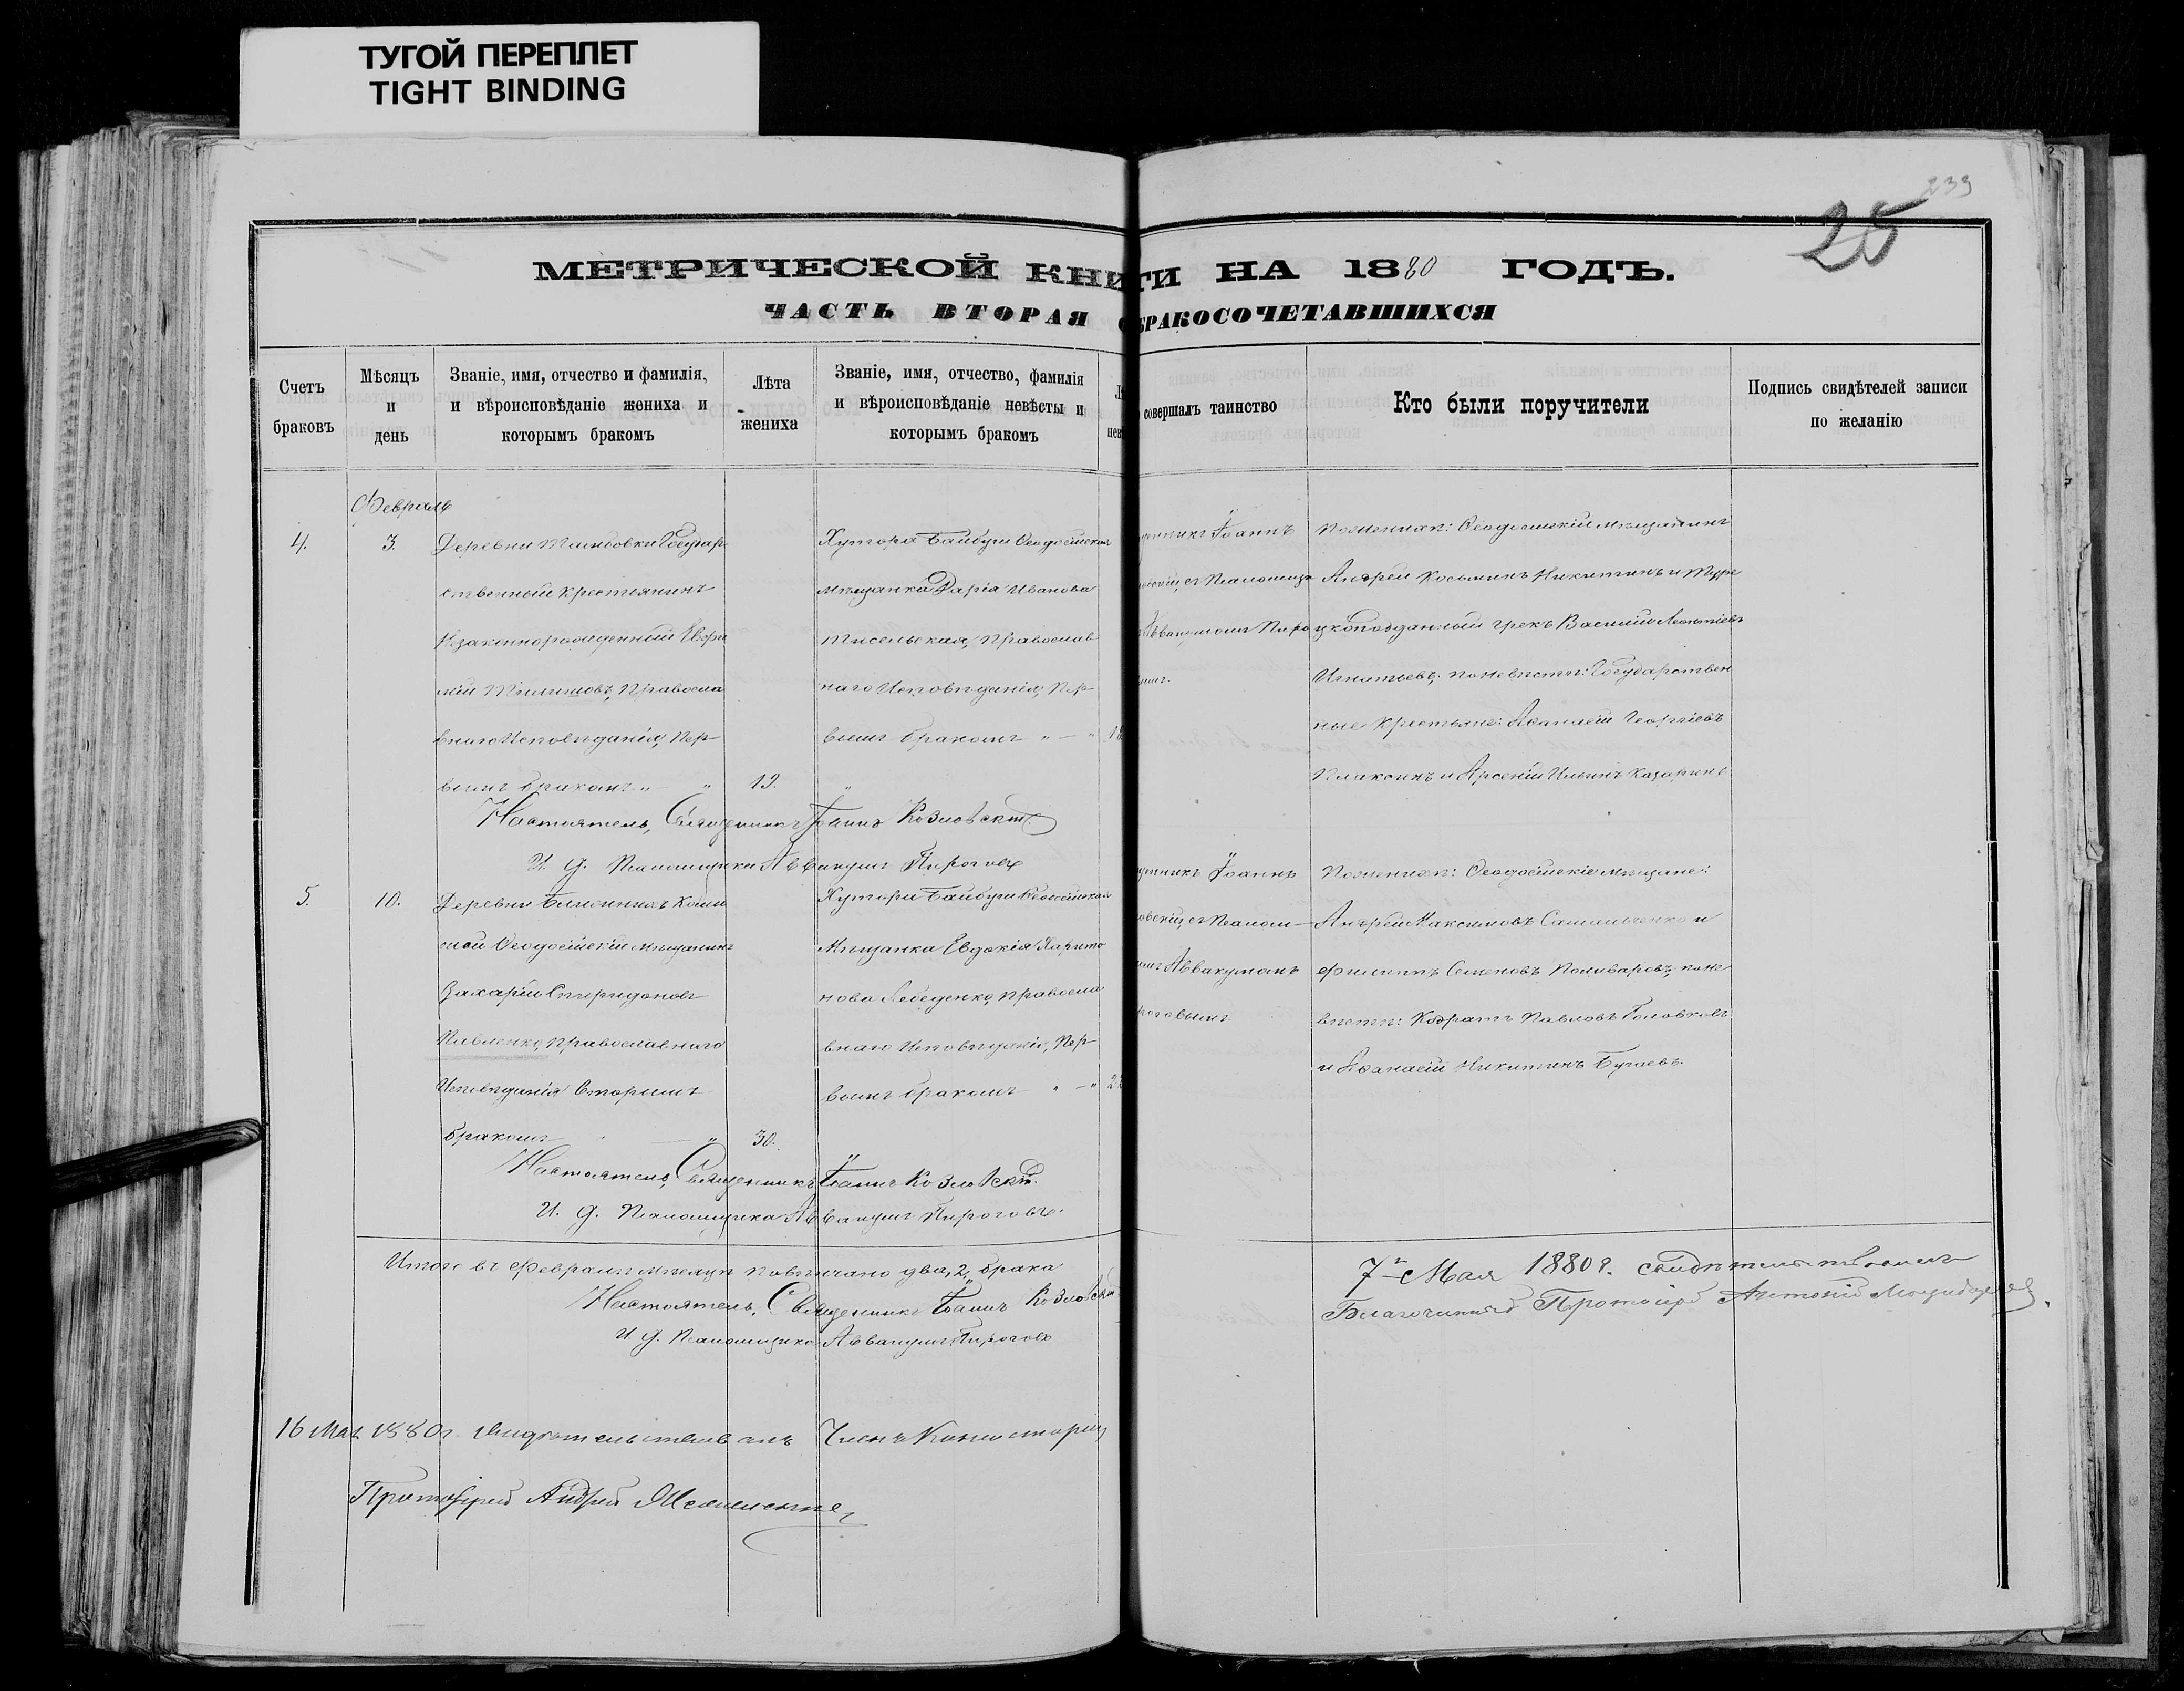 ТУГОЙ ПЕРЕПЛЕТ
TIGHT BINDING
239
25
МЕТРИЧЕСКОЙ КНИГИ НА 1880 ГОДЪ.
ЧАСТЬ ВТОРАЯ О БРАКОСОЧЕТАВШИХСЯ
Счетъ браковъ
Мѣсяцъ и день
Званіе, имя, отчество и фамилія, и вѣроисповѣданіе жениха и которымъ бракомъ
Лѣта жениха
Званіе, имя, отчество, фамилія и вѣроисповѣданіе невѣсты и которымъ бракомъ
совершалъ таинство
Кто были поручители
Подпись свидѣтелей записи по желанію
Февраль
4.
3.
Деревни Государ
ственный крестьянинъ
Незаконнорожденный
Правосла
внаго Исповѣданія, Пер
вымъ бракомъ
19.
Хутора Байбуги Ѳеодосійская
мѣщанка Дарія Иванова
Кисельская, Православ
наго Исповѣданія, Пер
вымъ бракомъ
Іоаннъ
Аввакумомъ Пиро
По женихѣ: Ѳеодосійскій мѣщанинъ
Андрей Косьминъ Никитинъ и Туре
цкоподданный грекъ Василій Леонтіевъ
Игнатьевъ; по невѣстѣ: Государствен
ные крестьяне: Аѳанасій Георгіевъ
Плаксинъ и Арсеній Ильинъ Казаринъ
Настоятель, Священникъ Іоаннъ Козловскій
И. д. Псаломщика Аввакумъ Пироговъ
5.
10.
Деревни
Ѳеодосійскій мѣщанинъ
Захарій Спиридоновъ
Павленко, Православнаго
Исповѣданія Вторымъ
бракомъ
30.
Хутора Байбуги Ѳеодосійская
Мѣщанка Евдокія Харито
нова Лебеденко, Правосла
внаго Исповѣданія, Пер
вымъ бракомъ
Іоаннъ
Аввакумомъ
роговымъ
По женихѣ: Ѳеодосійскіе мѣщане:
Андрей Максимовъ и
Филиппъ Семеновъ Поливаровъ; по не
вѣстѣ: Кодратъ Павловъ Головковъ
и Аѳанасій Никитинъ Бугаевъ.
Настоятель, Священникъ Іоаннъ Козловскій.
И. д. Псаломщика Аввакумъ Пироговъ.
Итого въ Февралѣ мѣсяцѣ повѣнчано два, 2, брака
Настоятель, Священникъ Іоаннъ Козловскій
И. д. Псаломщика Аввакумъ Пироговъ
7 Мая 1880 г. свидѣтельствовалъ
Благочинный Протоіерей Антоній
16 Мая 1880 г. свидѣтельствовалъ Членъ Консисторіи
Протоіерей Андрей